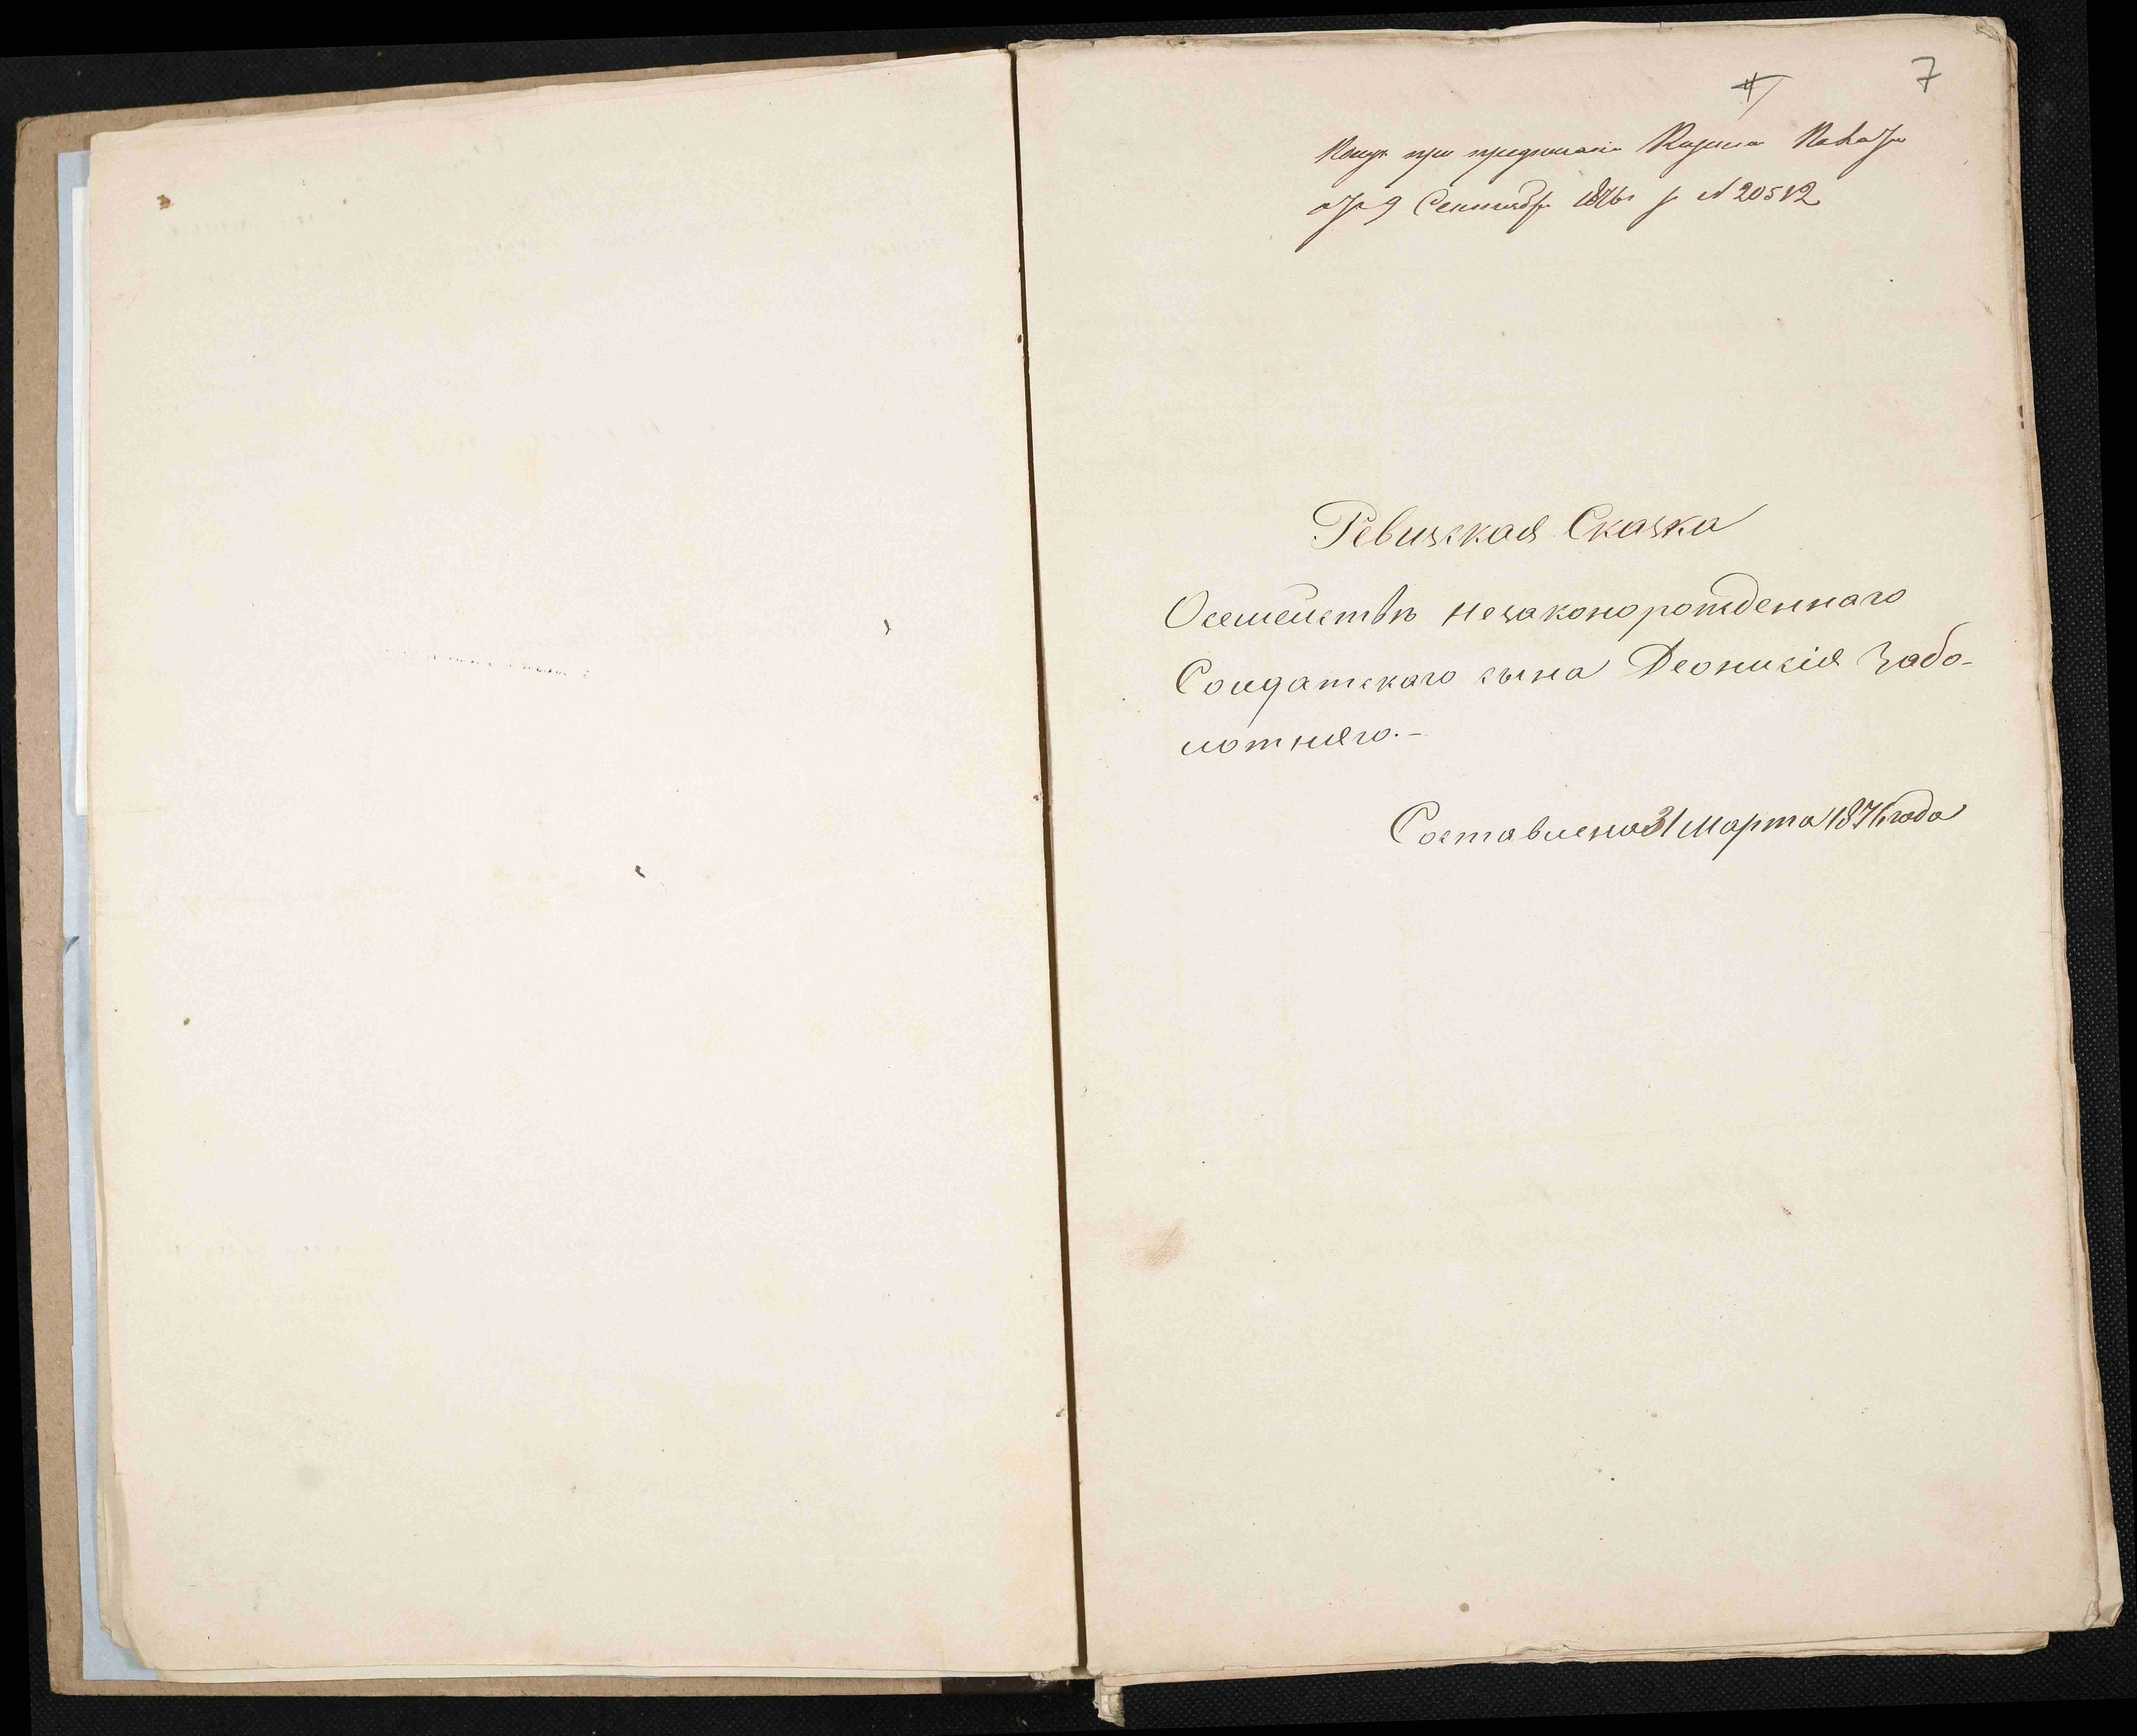 7
при предписании Казенн Палаты
отъ 9 Сентября 1876 г № 20512
Ревизская Сказка
Осемействѣ незаконорожденнаго
Солдатскаго сына Деонисія Забо-
лотняго.-
Составлена 31 Марта 1876 года